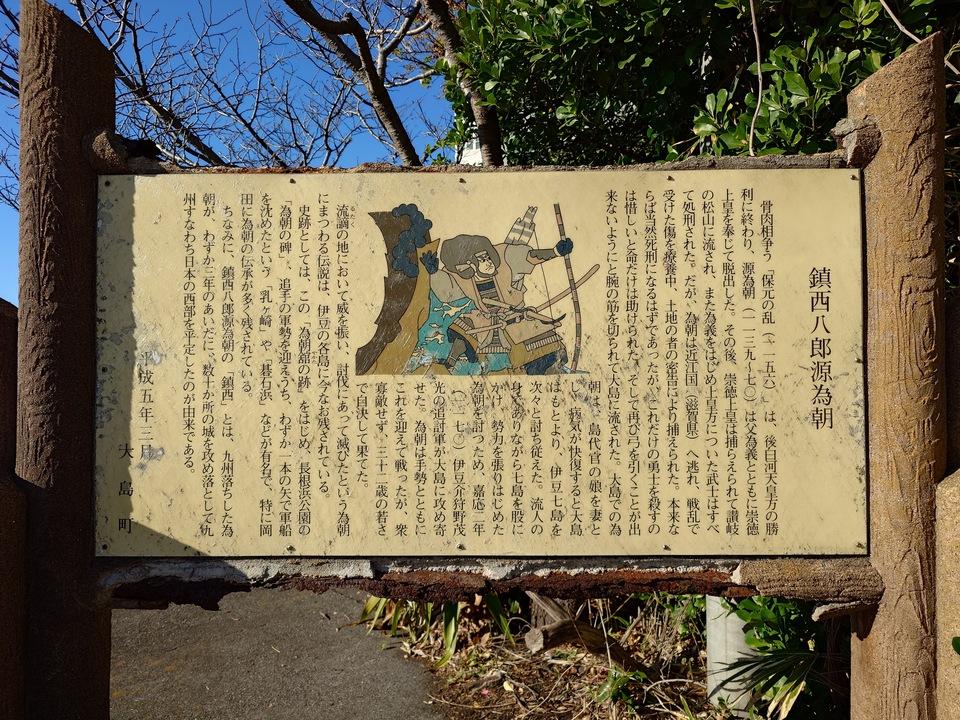 鎮西八郎源為朝
骨肉相争う「保元の乱（一一五六）」は、後白河天皇方の勝
利に終わり、源為朝（一一三九〜七〇）は父為義とともに崇徳
上皇を奉じて脱出した。その後、崇徳上皇は捕らえられて讃岐
の松山に流され、また為義をはじめ上皇方についた武士はすべ
て処刑された。だが、為朝は近江国（滋賀県）へ逃れ、戦乱で
受けた傷を療養中、土地の者の密告により捕えられた。本来な
らば当然死刑になるはずであったが、これだけの勇士を殺すの
は惜しいと命だけは助けられた。そして再び弓を引くことが出
来ないようにと腕の筋を切られて大島に流された。大島での為
朝は、島代官の娘を妻と
し、病気が快復すると大島
はもとより、伊豆七島を
次々と討ち従えた。流人の
身でありながら七島を股に
かけ、勢力を張りはじめた
為朝を討つため、嘉応二年
（一一七〇）伊豆介狩野茂
光の追討軍が大島に攻め寄
せた。為朝は手勢とともに
これを迎えて戦ったが、衆
寡敵せず、三十二歳の若さ
で自決して果てた。
流謫の地において威を振い、討伐にあって滅びたという為朝
るたく
にまつわる伝説は、伊豆の各島に今なお残されている。
史跡としては、この「為朝舘の跡」をはじめ、長根浜公園の
「為朝の碑」、追手の軍勢を迎えうち、わずか一本の矢で軍船
を沈めたという「乳ヶ崎」や、「碁石浜」などが有名で、特に岡
田に為朝の伝承が多く残されている。
ちなみに、鎮西八郎源為朝の「鎮西」とは、九州落ちした為
朝が、わずか三年のあいだに、数十か所の城を攻め落として九
州すなわち日本の西部を平定したのが由来である。
平成五年三月
大島町